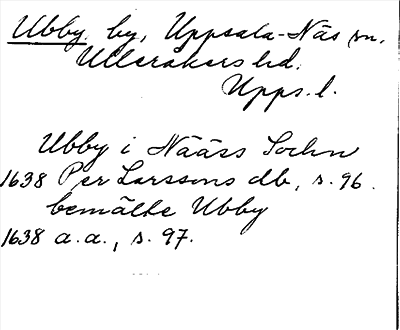 Ubby, by, Uppsala-Näs sn.
Ulleråkers hd.
Upps. l.
Ubby i Nääss Sochn
1638 Per Larssons db, s. 96.
bemälte Ubby
1638 a.a., s. 97.